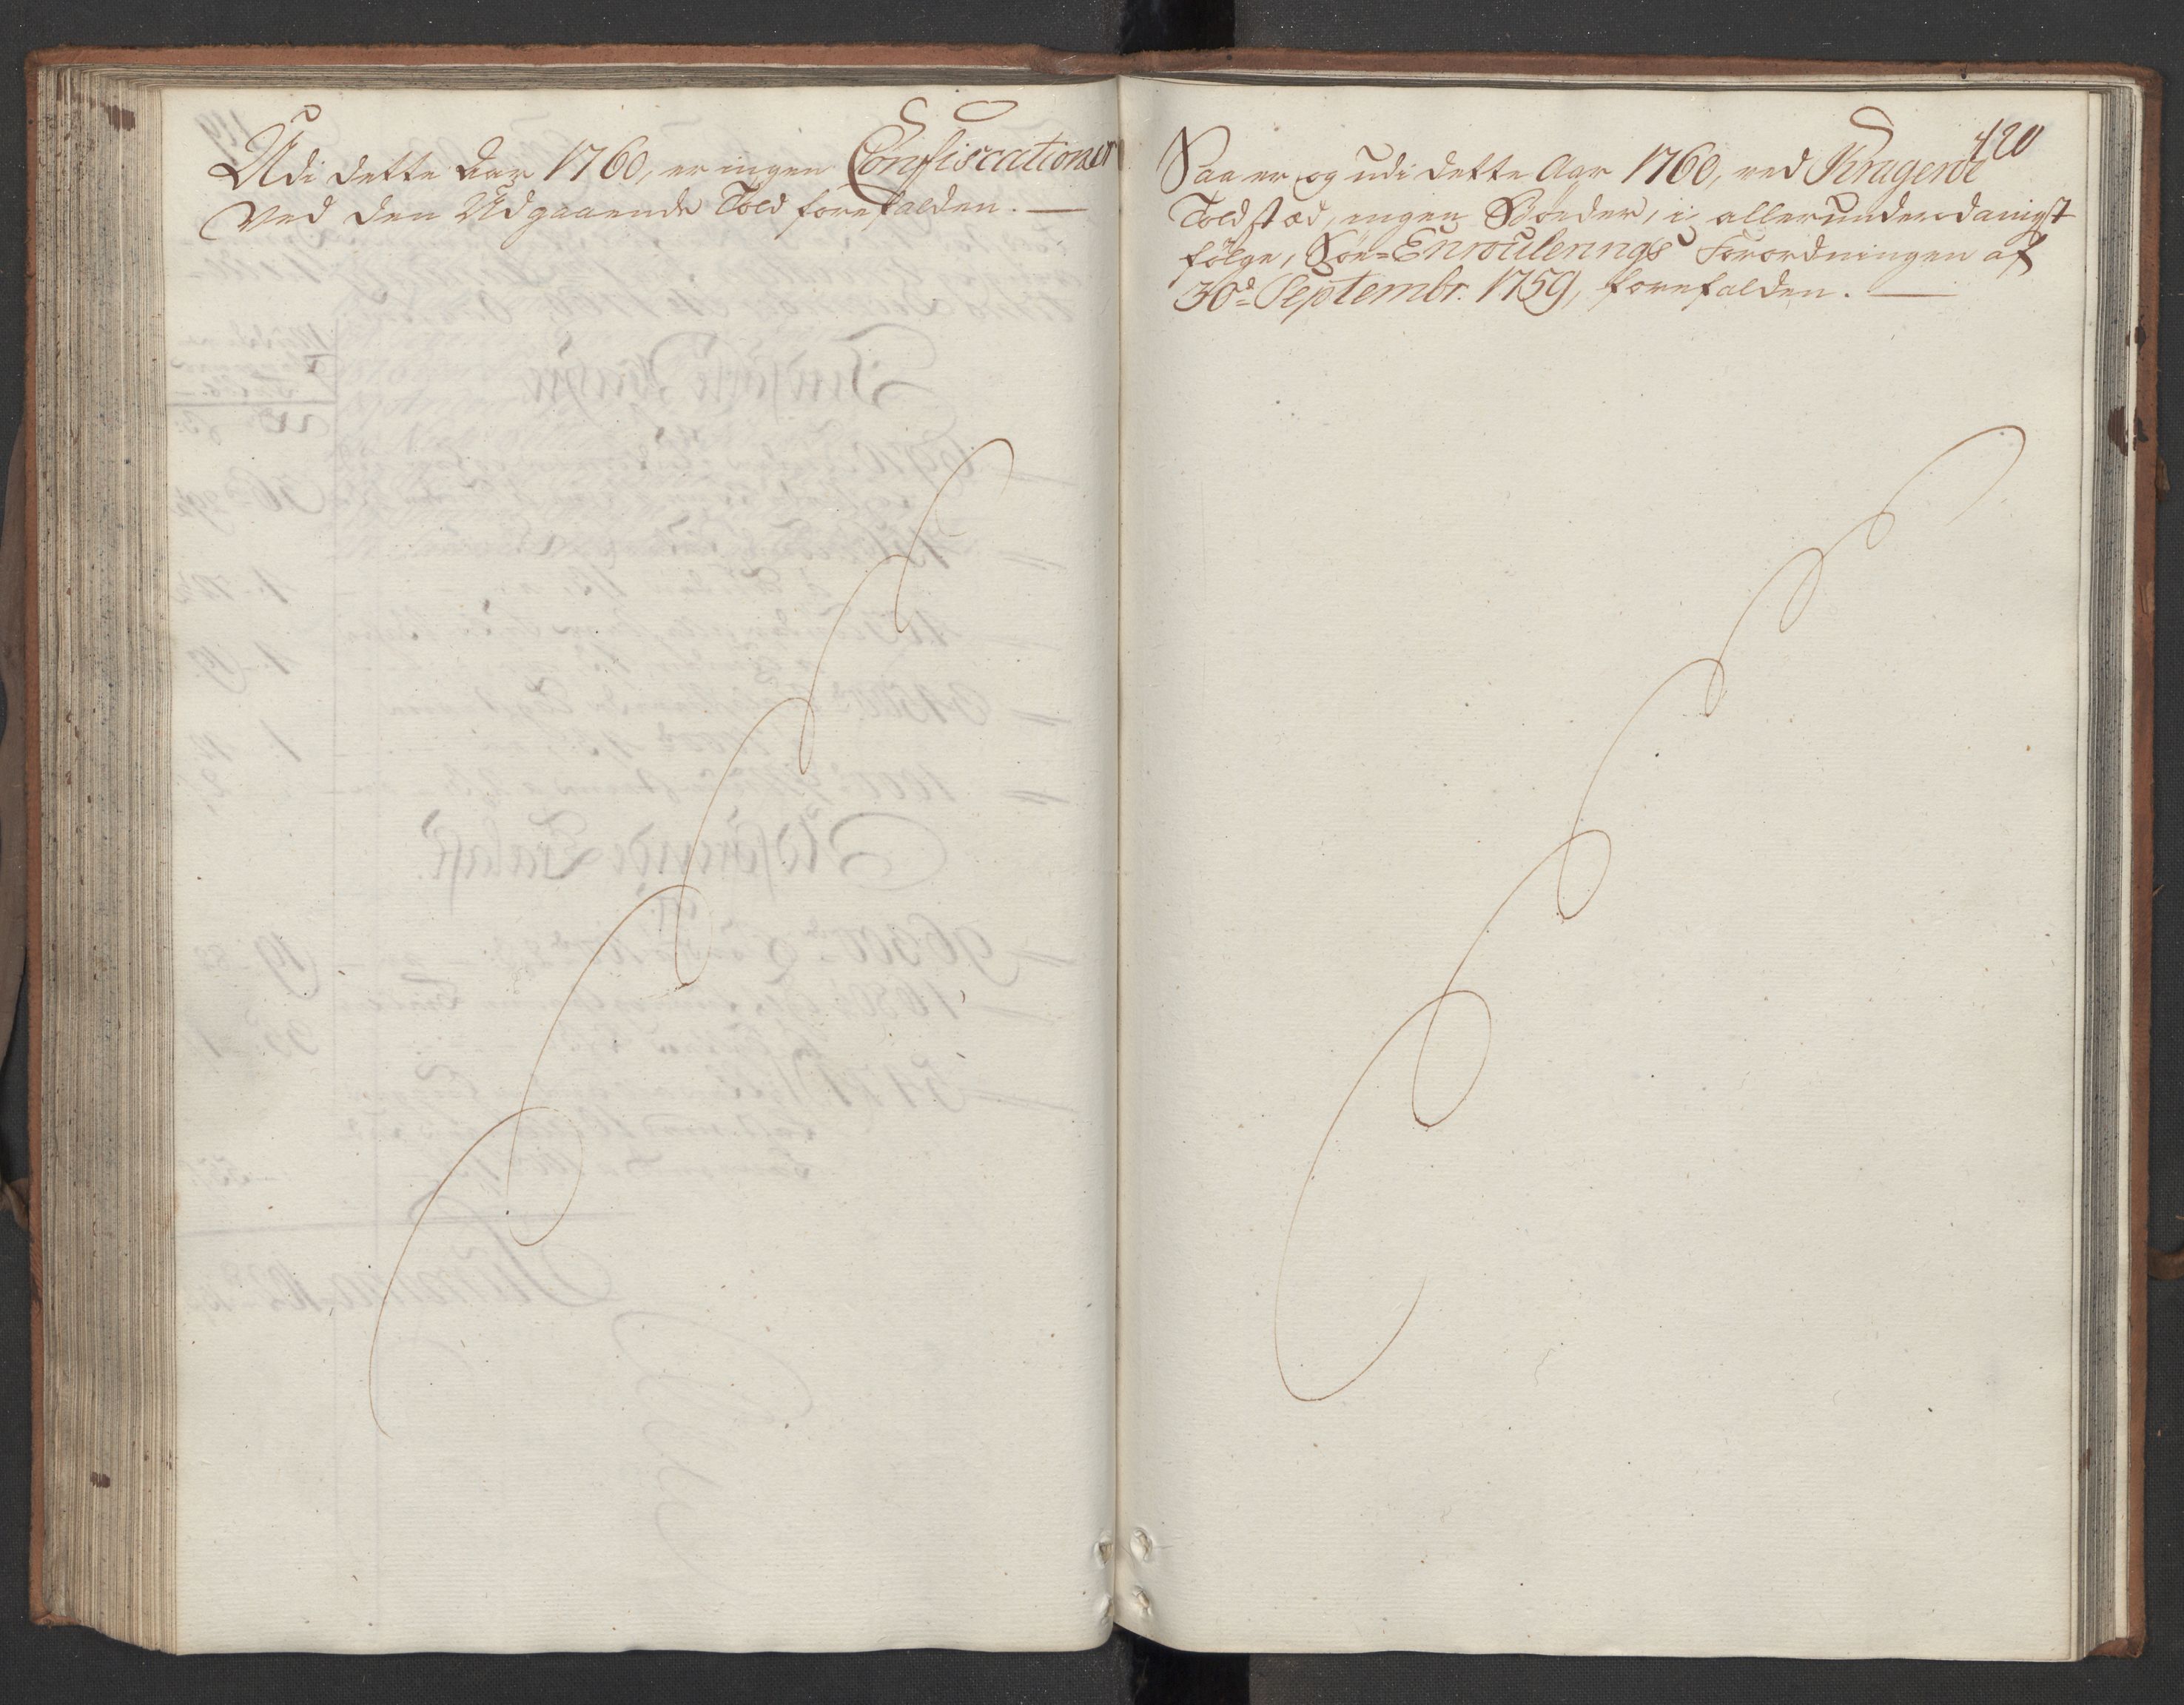 Udi dette Aar 1760, er ingen Confiscationer
Ved den Udgaaende Told forefalden. —
420
Saa er og udi dette Aar 1760, ved Kragerøe
Toldstæd, ingen Bøeder, i allerunderdanigst
følge, Søe-Enroulerings Forordningen af
30d= Septembr. 1759, forefalden. —